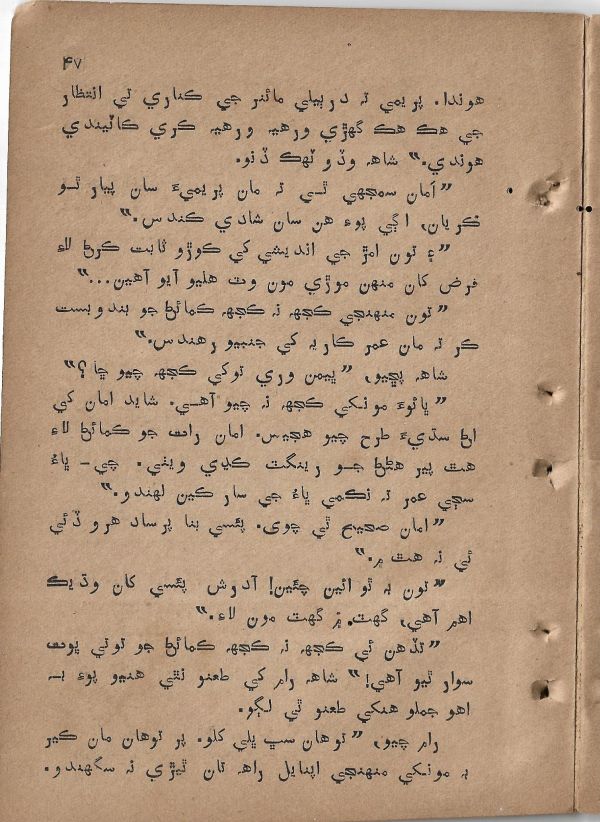 ۴۷
هوندا. پريمي ته دربيلي مائنر جي ڪناري تي انتظار
جي هڪ هڪ گهڙي ورهيه ورهيه ڪري ڪاٽيندي
هوندي.” شاهه وڏو ٽهڪ ڏنو.
”امان سمجهي ٿي ته مان پريميءَ سان پيار ٿو
ڪريان، اڳي پوءِ هن سان شادي ڪندس.”
”۽ تون امڙ جي انديشي کي ڪوڙو ثابت ڪرڻ لاءِ
فرض کان منهن موڙي مون وٽ هليو آيو آهين...”
”تون منهنجي ڪجهه نه ڪجهه ڪمائڻ جو بندوبست
ڪر ته مان عمر ڪاربه کي جنبيو رهندس.”
شاهه پڇيو، ”ڀيمن وري توکي ڪجهه چيو ڇا؟”
”ڀائوءَ مونکي ڪجهه نه چيو آهي. شايد امان کي
اڻ سڌيءَ طرح چيو هجيس. امان رات جو ڪمائڻ لاءِ
هٿ پير هڻڻ جو رينگٽ ڪڍي ويٺي. چي- ڀاءُ
سڄي عمر نه نڪمي ڀاءُ جي سار ڪين لهندو.”
”امان صحيح ٿي چوي. پئسي بنا پرساد هروڀئي
ئي نه هٿ ۾.”
”تون به ٿو ائين چئين! آدرش پئسي کان وڌيڪ
اهم آهي، گهٽ ۾ گهٽ مون لاءِ.”
”تڏهن ئي ڪجهه نه ڪجهه ڪمائڻ جو توتي ڀوت
سوار ٿيو آهي!” شاهه رام کي طعنو نٿي هنيو پوءِ به
اهو جملو هنکي طعنو ٿي لڳو.
رام چيو، ”توهان سڀ ڀلي کلو. پر توهان مان ڪير
به مونکي منهنجي اپنايل راهه تان ٿيڙي نه سگهندو.